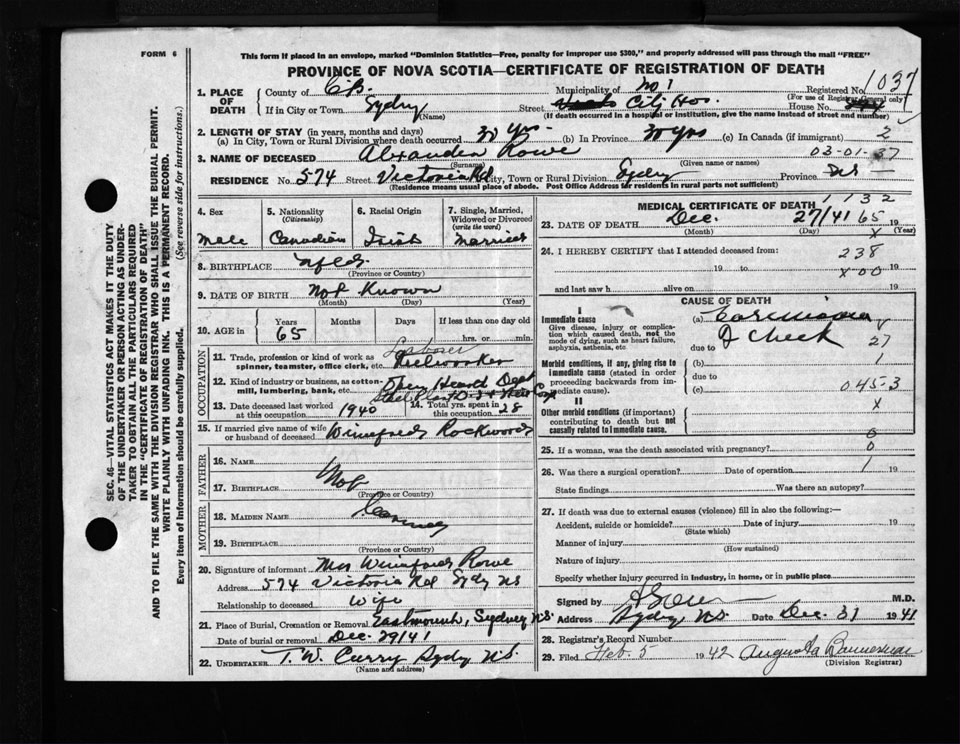 FORM 6
This form if placed in an envelope, marked "Dominion Statistics—Free, penalty for improper use $300," and properly addressed will pass through the mail "FREE"
PROVINCE OF NOVA SCOTIA—CERTIFICATE OF REGISTRATION OF DEATH
SEC. 46—VITAL STATISTICS ACT MAKES IT THE DUTY
OF THE UNDERTAKER OR PERSON ACTING AS UNDER-
TAKER TO OBTAIN ALL THE PARTICULARS REQUIRED
IN THE "CERTIFICATE OF REGISTRATION OF DEATH"
AND TO FILE THE SAME WITH THE DIVISION REGISTRAR WHO SHALL ISSUE THE BURIAL PERMIT.
WRITE PLAINLY WITH UNFADING INK. THIS IS A PERMANENT RECORD.
Every item of Information should be carefully supplied. (See reverse side for instructions.)
1. PLACE OF DEATH County of C.B. Municipality No 1 Registered No. 1037
(For use of Registrar General only)
If in City or Town Sydney Street City Hos. House No.
(Name) (If death occurred in a hospital or institution, give the name instead of street and number)
2. LENGTH OF STAY (in years, months and days) 2
(a) In City, Town or Rural Division where death occurred 30 yrs. (b) In Province 30 yrs (c) In Canada (if immigrant)
3. NAME OF DECEASED Alexander Rowe 03-01-37
(Surname) (Given name or names)
RESIDENCE No. 574 Street Victoria Rd City, Town or Rural Division Sydney Province NS
(Residence means usual place of abode. Post Office Address for residents in rural parts not sufficient)
4. Sex 5. Nationality (Citizenship) 6. Racial Origin 7. Single, Married, Widowed or Divorced (write the word)
Male Canadian Irish Married
8. BIRTHPLACE Nfld.
(Province or Country)
9. DATE OF BIRTH Not Known
(Month) (Day) (Year)
10. AGE in Years Months Days If less than one day old
65 hrs. or min.
OCCUPATION
11. Trade, profession or kind of work as spinner, teamster, office clerk, etc. Laborer Steelworker
12. Kind of industry or business, as cotton-mill, lumbering, bank, etc. Open Hearth Dept
Steel Plant
13. Date deceased last worked at this occupation 1940 14. Total yrs. spent in this occupation 28
15. If married give name of wife or husband of deceased Winnifred Rockwood
FATHER
16. NAME
17. BIRTHPLACE Not
(Province or Country)
MOTHER
18. MAIDEN NAME
19. BIRTHPLACE
(Province or Country)
20. Signature of informant Mrs Winnifred Rowe
Address 574 Victoria Rd Sydy NS
Relationship to deceased Wife
21. Place of Burial, Cremation or Removal Eastmount, Sydney N.S.
Date of burial or removal Dec. 29/41
22. UNDERTAKER T. W. Curry Sydy NS.
(Name and address)
MEDICAL CERTIFICATE OF DEATH 1132
23. DATE OF DEATH Dec. 27/41 65 19
(Month) (Day) x (Year)
24. I HEREBY CERTIFY that I attended deceased from: 238
19 to x00 19
and last saw h alive on 19
CAUSE OF DEATH
I
Immediate cause (a) Carcinoma
Give disease, injury or complication which caused death, not the mode of dying, such as heart failure, asphyxia, asthenia, etc. due to of Cheek 27
Morbid conditions, if any, giving rise to immediate cause (stated in order proceeding backwards from immediate cause). (b) 1
due to
(c) 045-3
II
Other morbid conditions (if important) contributing to death but not causally related to immediate cause. x
0
25. If a woman, was the death associated with pregnancy? 0
26. Was there a surgical operation? Date of operation 1 19
State findings Was there an autopsy?
27. If death was due to external causes (violence) fill in also the following:—
Accident, suicide or homicide? Date of injury 19
(State which)
Manner of injury
(How sustained)
Nature of injury
Specify whether injury occurred in industry, in home, or in public place
Signed by M.D.
Address Sydy NS Date Dec. 31 1941
28. Registrar's Record Number
29. Filed Feb. 5 1942 Augusta Bannerman
(Division Registrar)